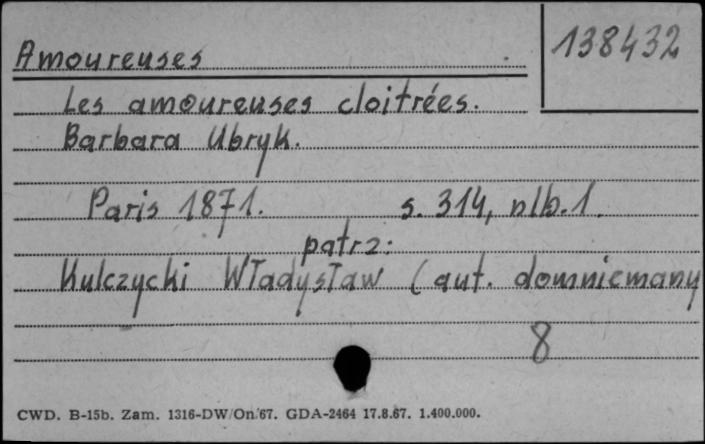 Amoureuses
138432
Les amoureuses cloitrées.
Barbara Ubryk.
Paris 1871. s. 314, nlb. 1.
patrz:
Kulczycki Władysław (aut. domniemany
8
CWD. B-15b. Zam. 1316-DW/On/67. GDA-2464 17.8.67. 1.400.000.